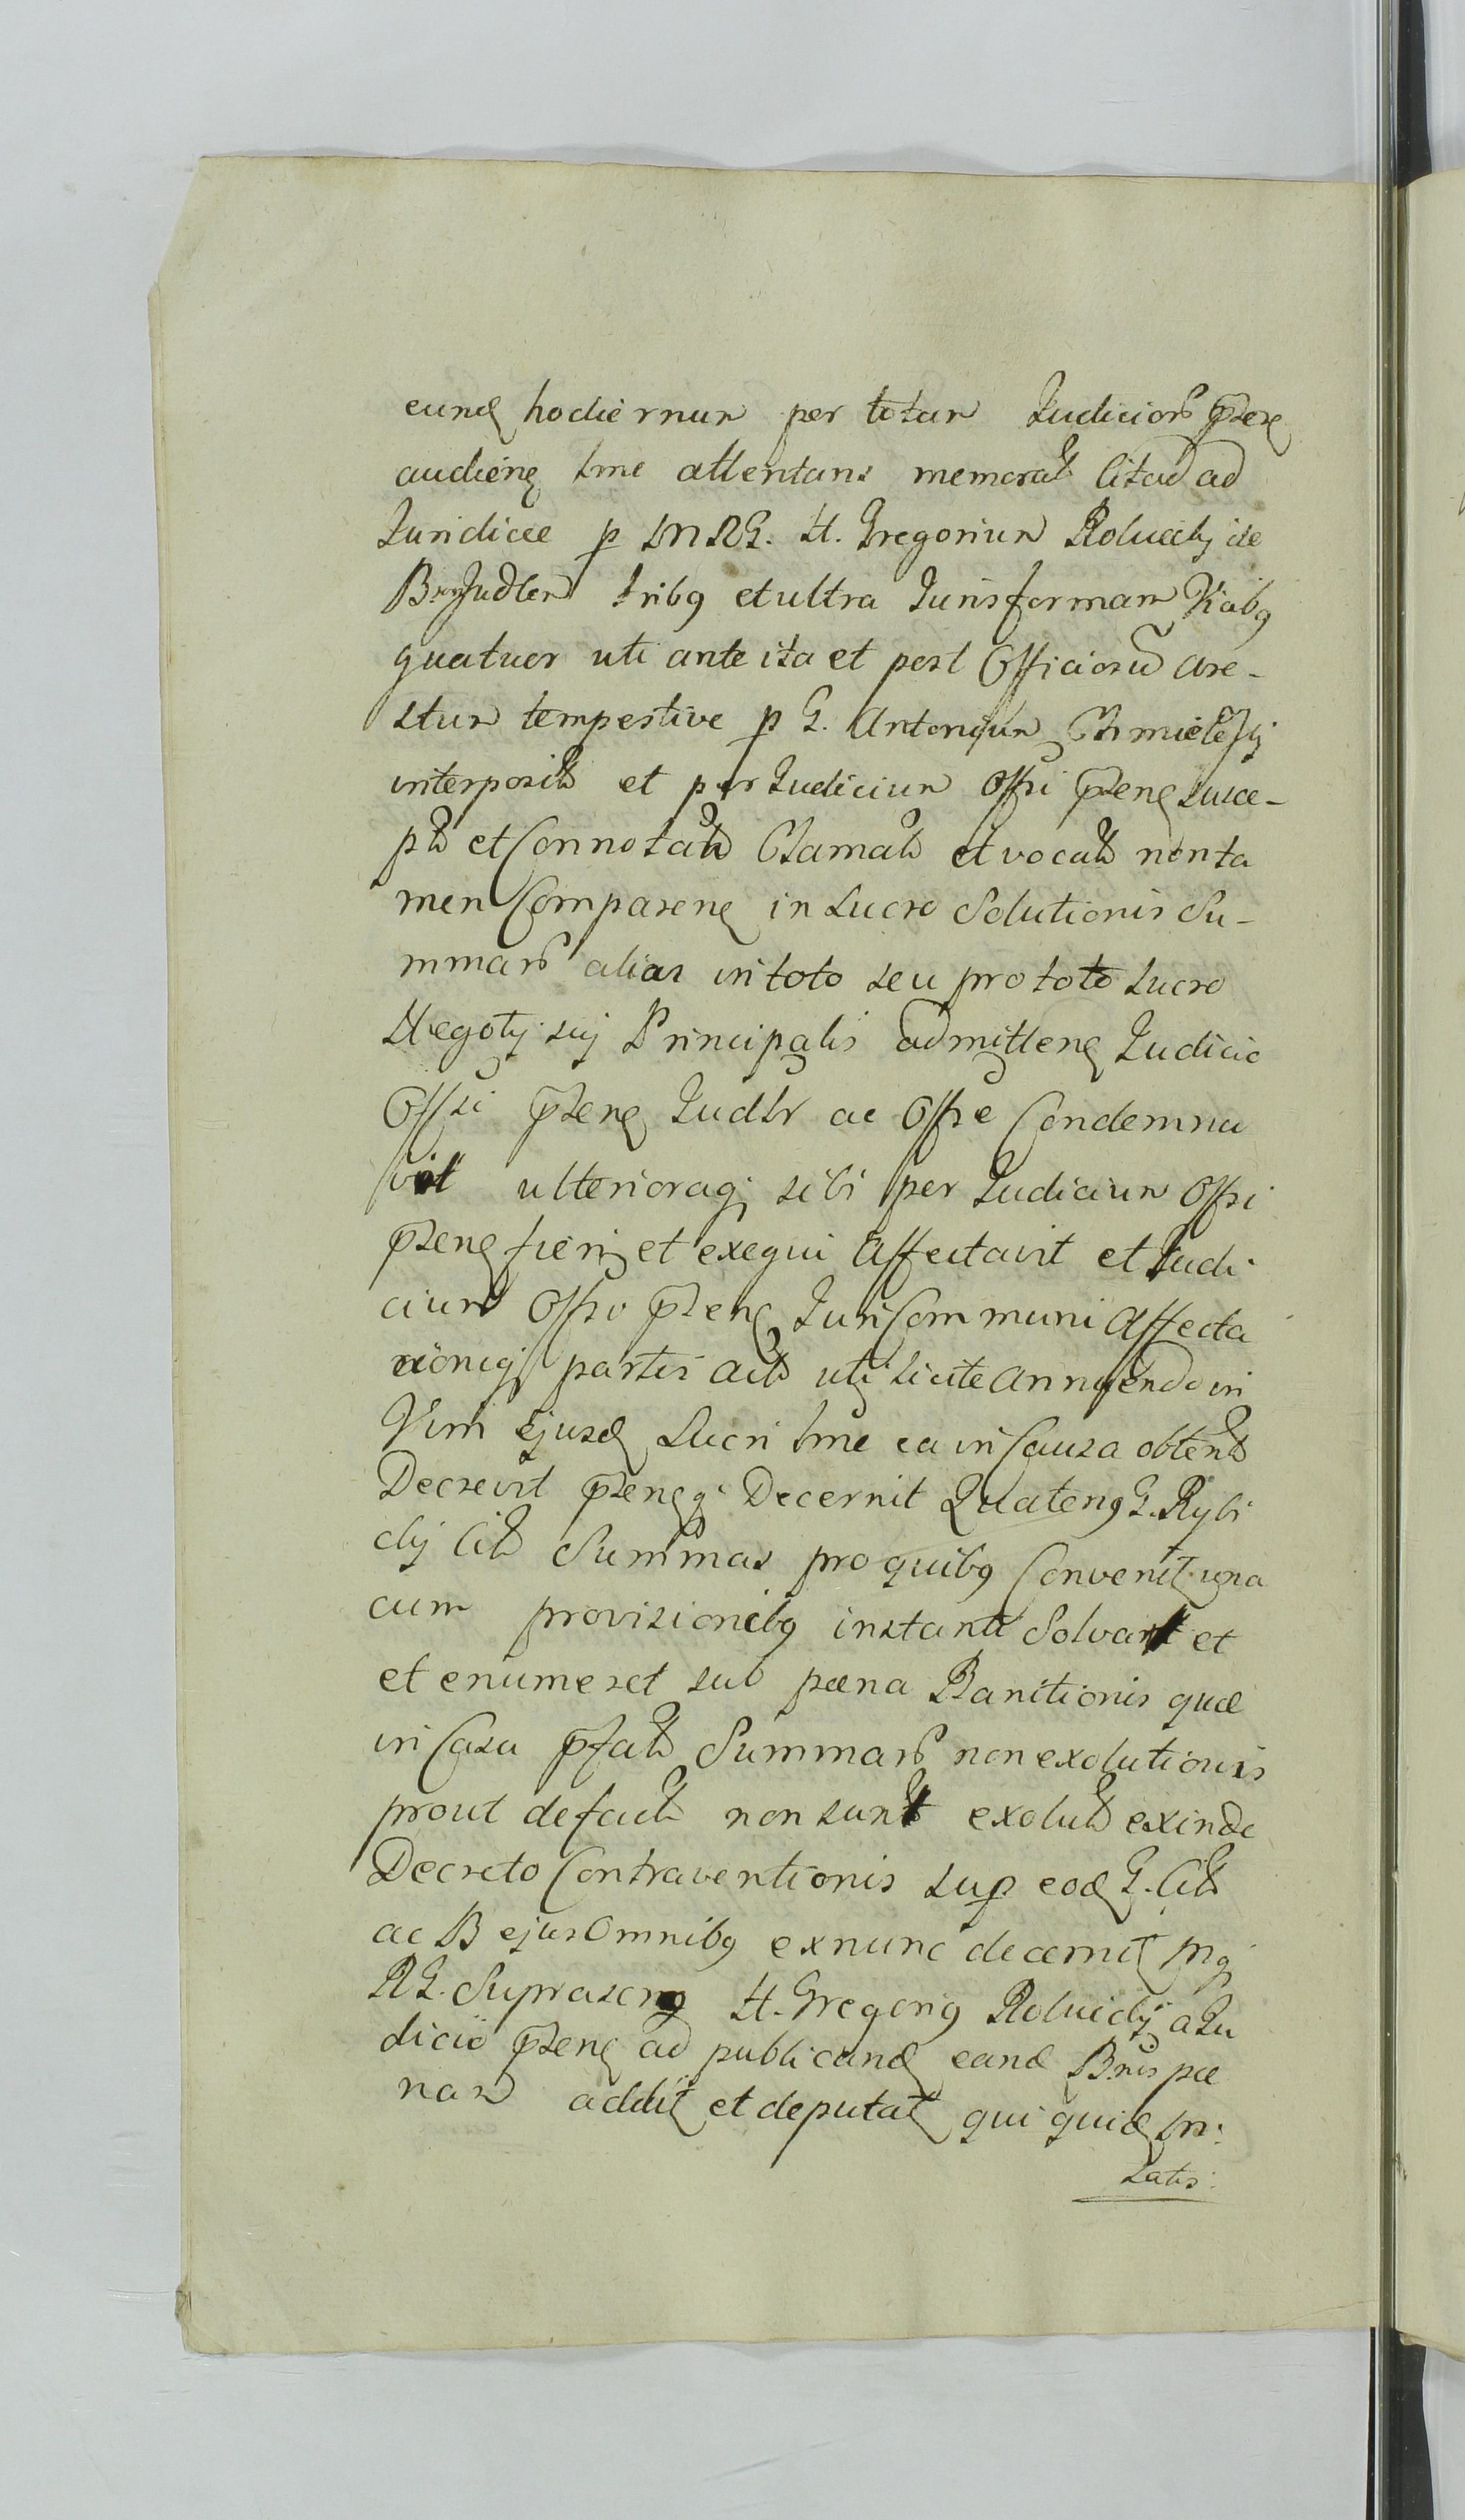 eund hodiernum per totam Iudiciorum psens
audien tme attentans memorat Citatum ad
Iuridice p MRG. H. Gregorium Rolnicki
Iudlem tribq et ultra Iuris formam Viabq
quatuor uti ante ita et post Officiosum are-
stum tempestive p G. Antonium Chmiele
interposit et per Iudicium Offsi psens susce-
pt et Connotat Clamat et vocat non ta
men Comparen in Lucro Solutionis Su-
mmarum alias in toto seu pro toto Lucro
Negotij sui Principalis admitten Iudicio
Offsi psen Iudlr ac Offse Condemna
vit ulterioraq sibi per Iudicium Offsi
psens fieri et exequi Affectavit et Iudi
cium Offsi psens Iuri Communi Affecta
cioniq partis act uti licite annuendo in
Vim ejusd Lucri tme ea in Causa obtent
Decrevit psensq Decernit Quatenq G. Rybi
cki Cit Summas pro quibq Convenit una
cum provisionibq instanti Solvat et
et enumeret sub pæna Banitionis quæ
in Casu pfat Summarum non exolutionis
prout defact non sunt exolut exinde
Decreto Contraventionis sup eod G. Cit
ac B ejus Omnibq exnunc decernit Mq
RG. Suprascrip H. Gregoriq Rolnicki a Iu
dicio psen ad publicand eand Bnis pæ
nam addit et deputat qui quid M: